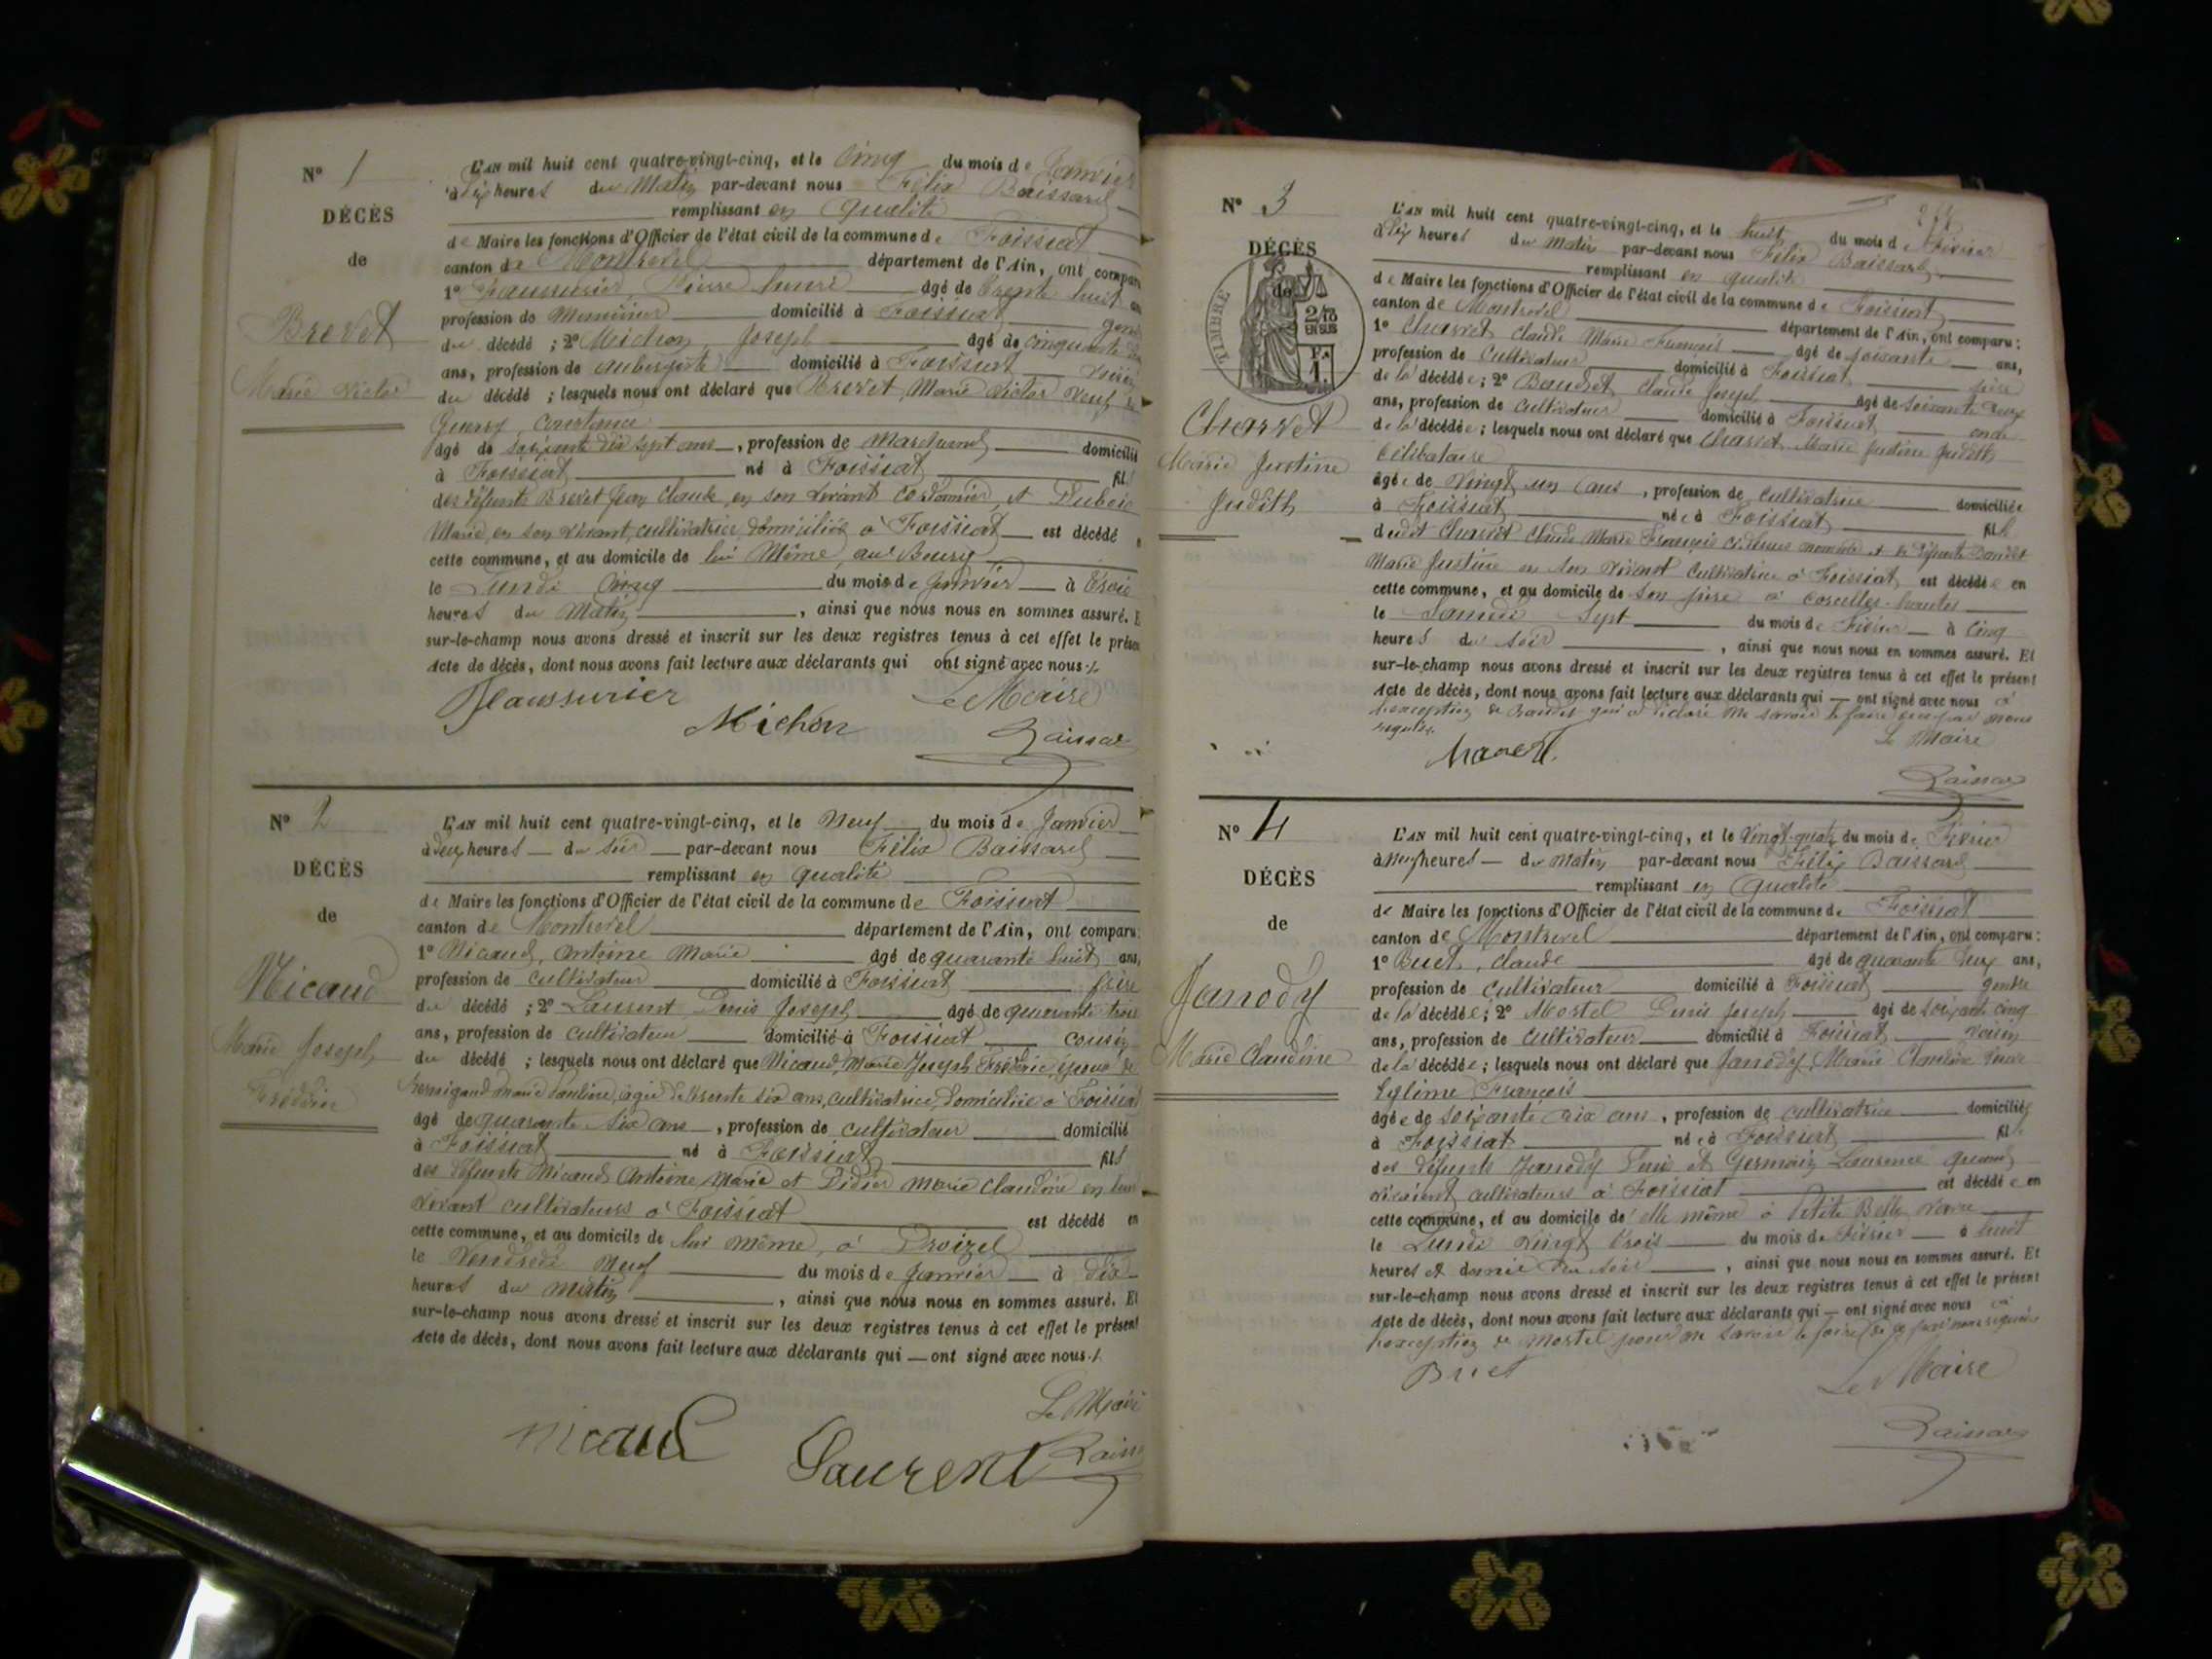 N° 1
DÉCÈS
de
Brevet
Marie Victor
L'AN mil huit cent quatre-vingt-cinq, et le Cinq du mois de Janvier
à dix heures du Matin par-devant nous Félix Baissard
remplissant en qualité
de Maire les fonctions d'Officier de l'état civil de la commune de Foissiat
canton de Montrevel département de l'Ain, ont comparu
1° Pierre âgé de trente huit an
profession de domicilié à Foissiat gend
du décédé ; 2° Michon, Joseph âgé de cinquante
ans, profession de aubergiste domicilié à Foissiat voisin
du décédé ; lesquels nous ont déclaré que Brevet, Marie Victor Veuf de
Constance
âgé de soixante dix sept ans, profession de Marchand domicilié
à Foissiat né à Foissiat fils
des défunts Brevet Jean Claude, en son vivant cordonnier, et Dubois
Marie, en son vivant, cultivatrice, domiciliés à Foissiat est décédé e
cette commune, et au domicile de lui Même, au Bourg
le Lundi Cinq du mois de Janvier à trois
heures du Matin, ainsi que nous nous en sommes assuré. E
sur-le-champ nous avons dressé et inscrit sur les deux registres tenus à cet effet le présen
Acte de décès, dont nous avons fait lecture aux déclarants qui ont signé avec nous ./.
Le Maire
Michon
N° 2
DÉCÈS
de
Nicaud
Marie Joseph
Frédéric
L'AN mil huit cent quatre-vingt-cinq, et le Neuf du mois de Janvier
à deux heures du soir par-devant nous Félix Baissard
remplissant en qualité
de Maire les fonctions d'Officier de l'état civil de la commune de Foissiat
canton de Montrevel département de l'Ain, ont comparu :
1° Nicaud, Antoine Marie âgé de quarante huit ans,
profession de cultivateur domicilié à Foissiat frère
du décédé ; 2° Laurent Denis Joseph âgé de quarante trois
ans, profession de cultivateur domicilié à Foissiat cousin
du décédé ; lesquels nous ont déclaré que Nicaud, Marie Joseph Frédéric, époux de
Marie Pauline, âgée de trente six ans, cultivatrice, domiciliée à Foissiat
âgé de quarante six ans, profession de cultivateur domicilié
à Foissiat né à Foissiat fils
des défunts Nicaud Antoine Marie et Didier Marie Claudine en leur
vivant cultivateurs à Foissiat est décédé en
cette commune, et au domicile de lui même, à Droizel
le Vendredi Neuf du mois de Janvier à dix
heures du matin, ainsi que nous nous en sommes assuré. Et
sur-le-champ nous avons dressé et inscrit sur les deux registres tenus à cet effet le présent
Acte de décès, dont nous avons fait lecture aux déclarants qui — ont signé avec nous ./.
Le Maire
Nicaud
Laurent
N° 3
DÉCÈS
de
TIMBRE
2/10
EN SUS
Charvet
Marie Justine
Judith
L'AN mil huit cent quatre-vingt-cinq, et le huit du mois de Février
à dix heures du matin par-devant nous Félix Baissard
remplissant en qualité
de Maire les fonctions d'Officier de l'état civil de la commune de Foissiat
canton de Montrevel département de l'Ain, ont comparu :
1° Charvet Claude Marie François âgé de soixante ans,
profession de Cultivateur domicilié à Foissiat père
de la décédée ; 2° Baudet Claude Joseph âgé de soixante deux
ans, profession de cultivateur domicilié à Foissiat oncle
de la décédée ; lesquels nous ont déclaré que Charvet Marie Justine Judith
Célibataire
âgée de Vingt un ans, profession de cultivatrice domiciliée
à Foissiat née à Foissiat fille
dudit Charvet Claude Marie François ci-dessus nommé et de défunte Baudet
Marie Justine en son vivant Cultivatrice à Foissiat, est décédée en
cette commune, et au domicile de son père à Corcelles-hautes
le Samedi Sept du mois de Février à Cinq
heures du soir, ainsi que nous nous en sommes assuré. Et
sur-le-champ nous avons dressé et inscrit sur les deux registres tenus à cet effet le présent
Acte de décès, dont nous avons fait lecture aux déclarants qui — ont signé avec nous à
l'exception de Baudet qui a déclaré ne savoir le faire nous
requis.
Le Maire
N° 4
DÉCÈS
de
Janody
Marie Claudine
L'AN mil huit cent quatre-vingt-cinq, et le vingt-quatre du mois de Février
à neuf heures du matin par-devant nous Félix Baissard
remplissant en qualité
de Maire les fonctions d'Officier de l'état civil de la commune de Foissiat
canton de Montrevel département de l'Ain, ont comparu :
1° Buet, Claude âgé de quarante deux ans,
profession de cultivateur domicilié à Foissiat gendre
de la décédée ; 2° Mortel Denis Joseph âgé de soixante cinq
ans, profession de cultivateur domicilié à Foissiat voisin
de la décédée ; lesquels nous ont déclaré que Janody, Marie Claudine veuve
François
âgée de soixante dix ans, profession de cultivatrice domiciliée
à Foissiat née à Foissiat fille
des défunts Janody Denis et Germain Laurence quand
vivaient cultivateurs à Foissiat est décédée en
cette commune, et au domicile de elle même à Petite Belle
le Lundi Vingt trois du mois de Février à huit
heures et demie du soir, ainsi que nous nous en sommes assuré. Et
sur-le-champ nous avons dressé et inscrit sur les deux registres tenus à cet effet le présent
Acte de décès, dont nous avons fait lecture aux déclarants qui — ont signé avec nous à
l'exception de Mortel pour ne savoir le faire de ce par nous requis
Buet
Le Maire